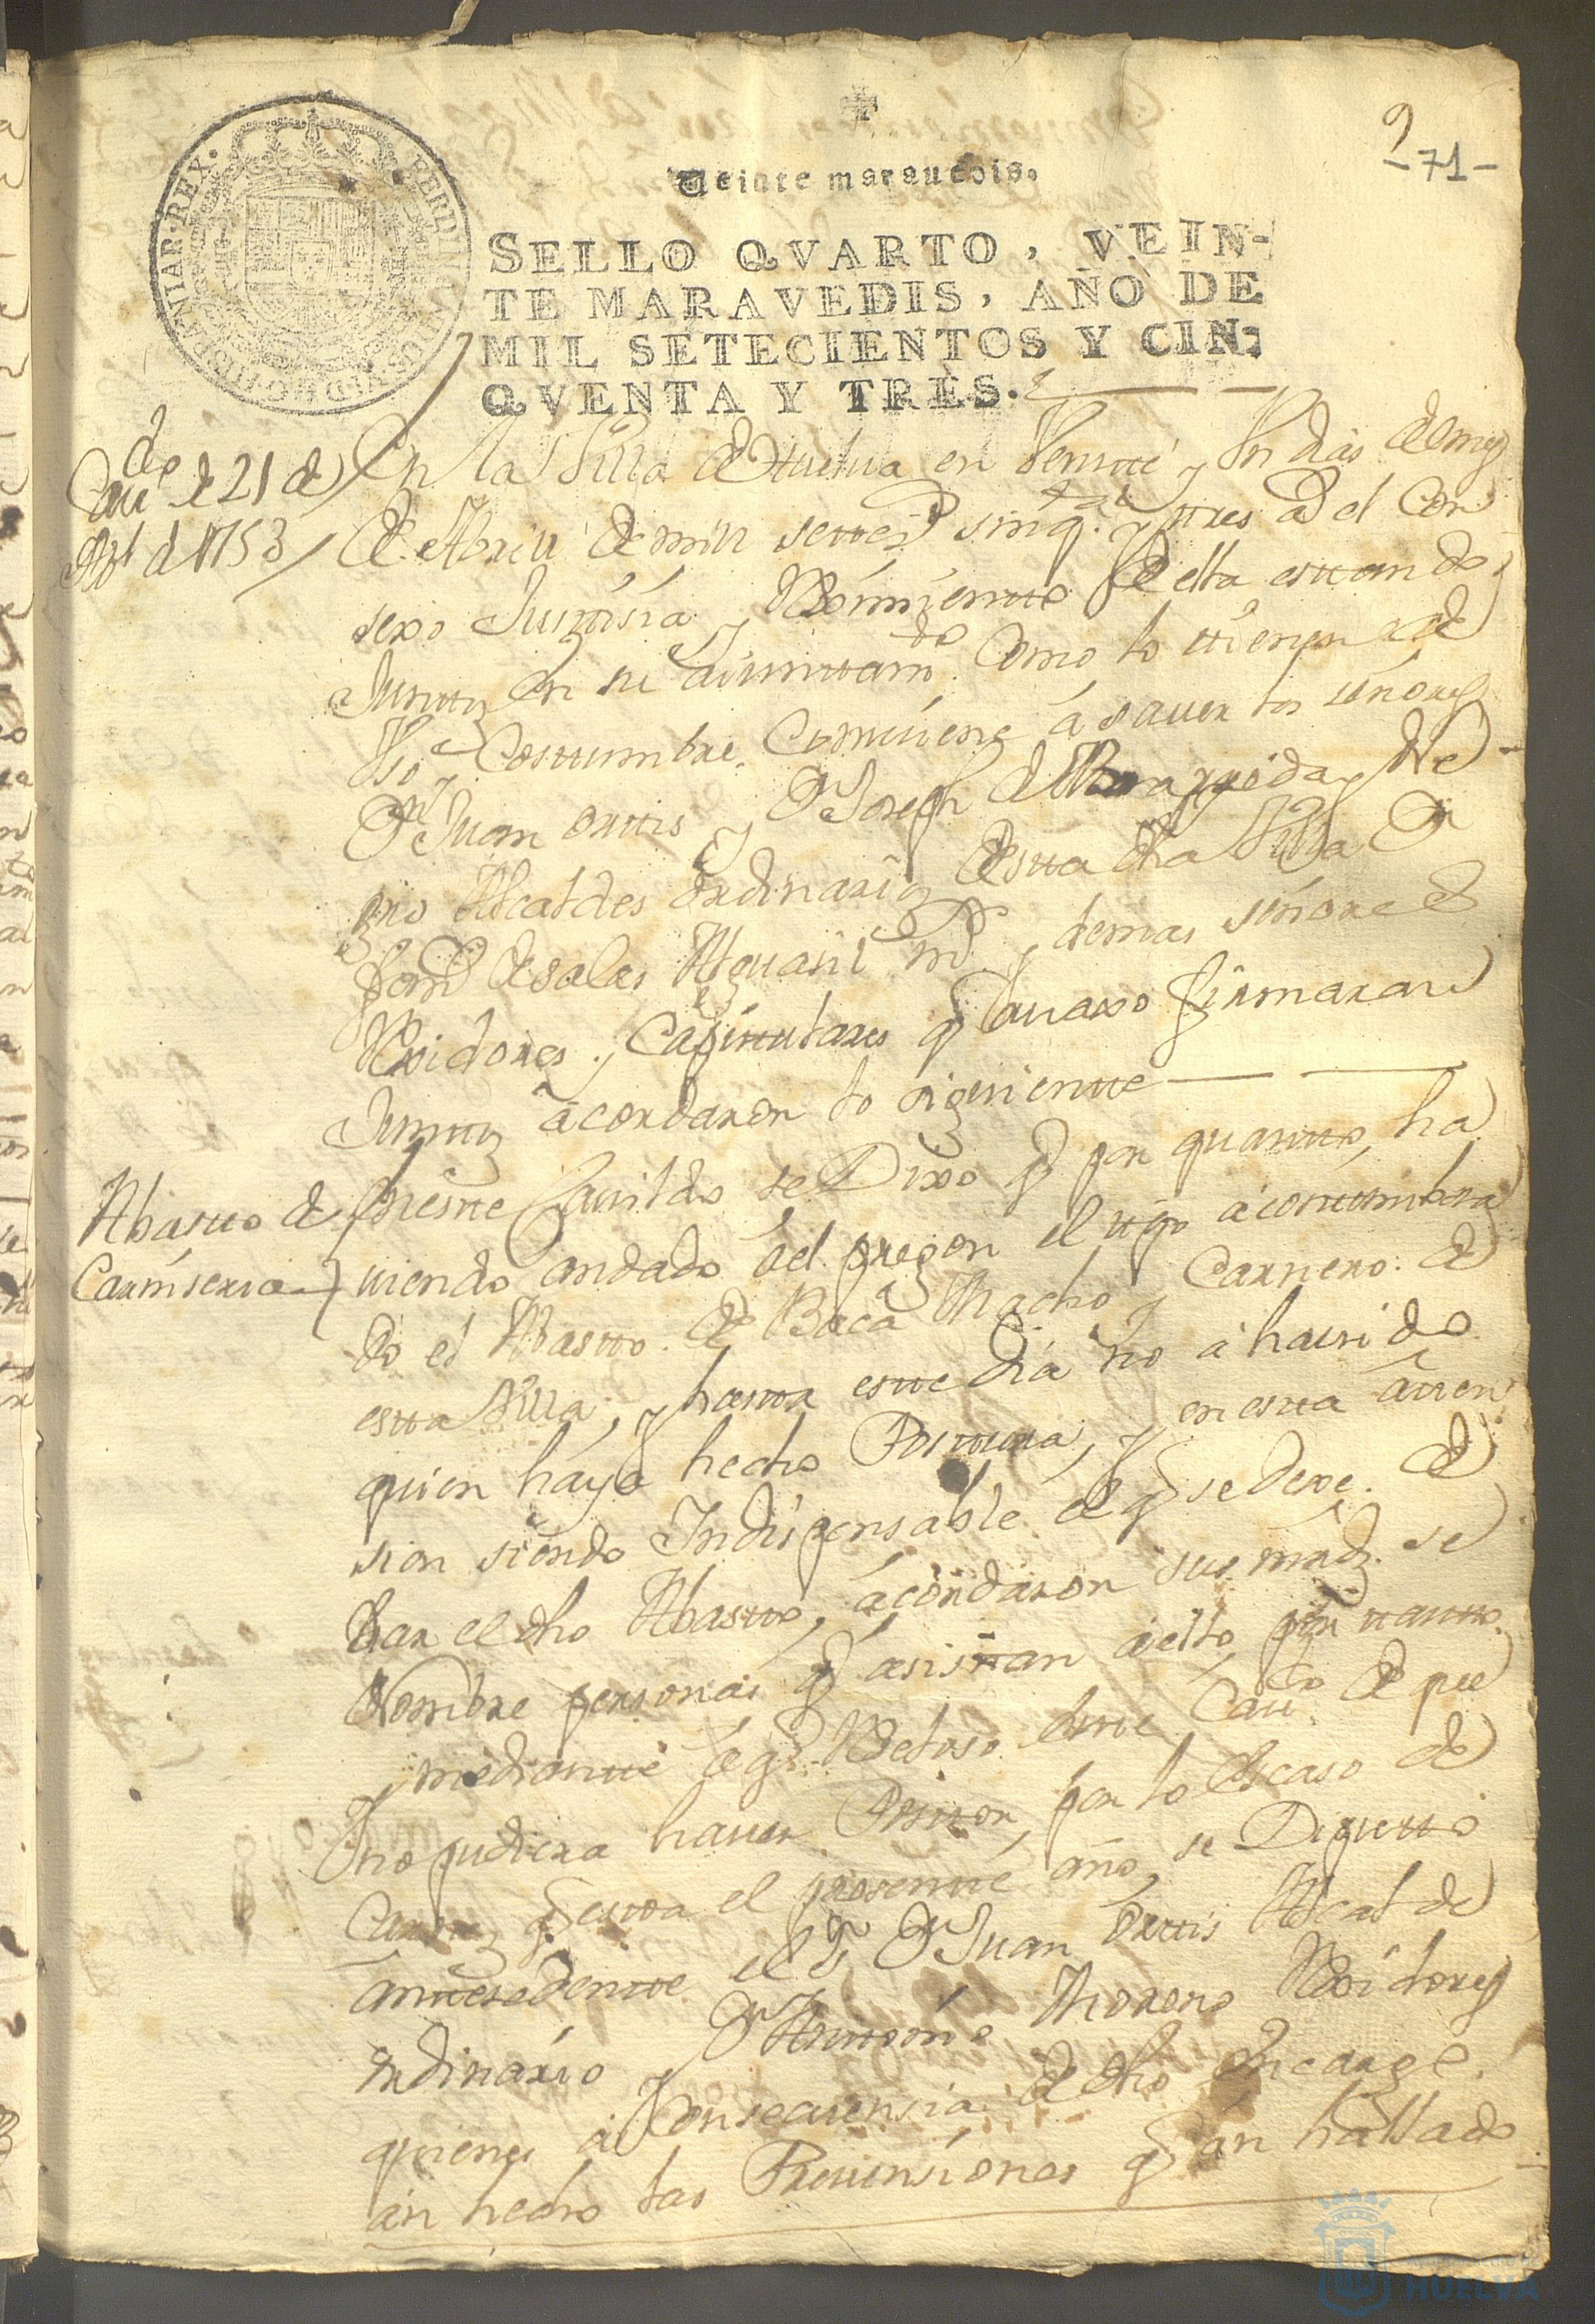 9
-71-
Veinte marauedis.
SELLO QVARTO, VEIN-
TE MARAVEDIS, AÑO DE
MIL SETECIENTOS Y CIN-
QVENTA Y TRES.
FERDINANDUS VI D G HISPANIAR REX
Caudo de 21 de
Abl de 1753
En la Villa de Huelua en Veinte y Un dias del mes
de Abril de mill settezs sinqta y tres as el Con
sexo Justisia y Reximiento de ella estando
Juntos en su aiuntamto como lo tienen de
Vso y Costumbre Combiene á sauer los señores
Dn Juan Orttis y Dn Joseph de Ne
gro Alcaldes Ordinarios de esta dha Villa Dn
de Salas Alguasil mr y demas señores
Rexidores y Capitulares q auaxo firmaran
Juntos acordaron lo siguiente
Abasto de
Carniseria
En este Cauildo se Dixo q por quanto ha
uiendo andado al pregon el tpo acostumbra
do el Abasto de Baca Macho y Carnero de
esta Villa, y hasta este dia no á hauido
quien haya hecho Postura, y en esta aten
sion siendo Indispensable el q se deve de
dar el dho Abasto, acordaron sus mrds se
Nombre personas q asistan a ello por tanto
y mediante á q Reseloso este Caudo de que
no pudiera hauer Postor por lo Escaso de
Carnes q esta el presente año, se Diputto
antesedente el Sr Dn Juan Orttis Alcalde
ordinario y Dn Antonio Moreno Rexidores
quienes a Consecuensia de dho Encargo
an hecho las Preuensiones q an hallado
HUELVA